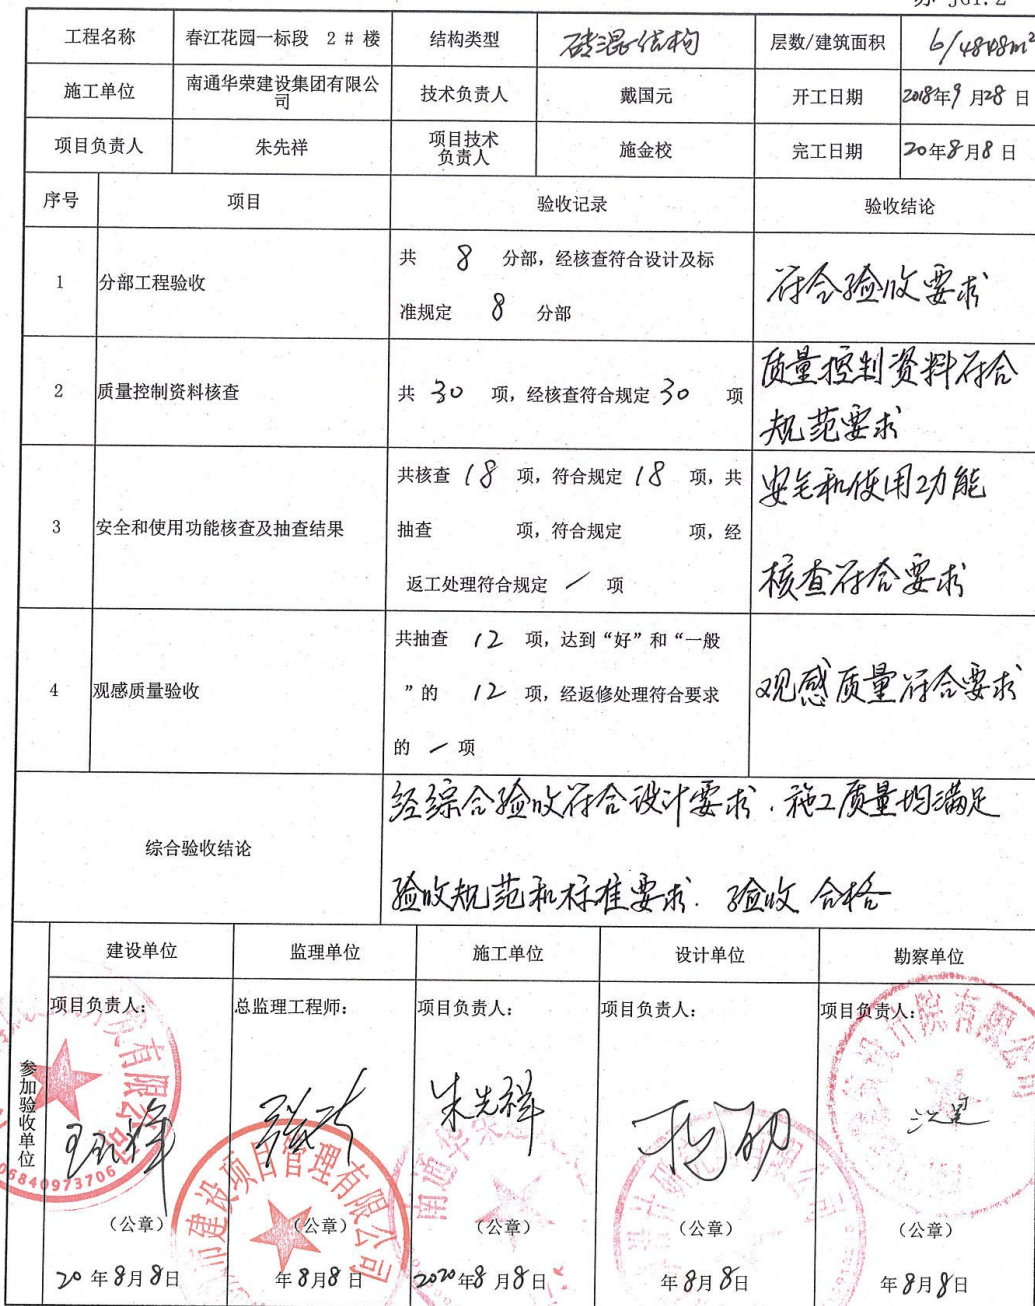 苏 JG1.2
工程名称 春江花园一标段 2 # 楼 结构类型 砖混结构 层数/建筑面积 6/4848m²
施工单位 南通华荣建设集团有限公司 技术负责人 戴国元 开工日期 2018年9月28日
项目负责人 朱先祥 项目技术负责人 施金校 完工日期 20年8月8日
序号 项目 验收记录 验收结论
1 分部工程验收
共 8 分部，经核查符合设计及标
准规定 8 分部
符合验收要求
2 质量控制资料核查
共 30 项，经核查符合规定 30 项
质量控制资料符合
规范要求
3 安全和使用功能核查及抽查结果
共核查 18 项，符合规定 18 项，共
抽查 项，符合规定 项，经
返工处理符合规定 / 项
安全和使用功能
核查符合要求
4 观感质量验收
共抽查 12 项，达到“好”和“一般
”的 12 项，经返修处理符合要求
的 / 项
观感质量符合要求
综合验收结论
经综合验收符合设计要求．施工质量均满足
验收规范和标准要求．验收 合格
参加验收单位
建设单位 监理单位 施工单位 设计单位 勘察单位
项目负责人： 总监理工程师： 项目负责人： 项目负责人： 项目负责人：
朱先祥
有限公司
06840973706
市建设项目管理有限公司
南通华荣
（公章） （公章） （公章） （公章） （公章）
20 年8月8日 年8月8日 2020年8月8日 年8月8日 年8月8日